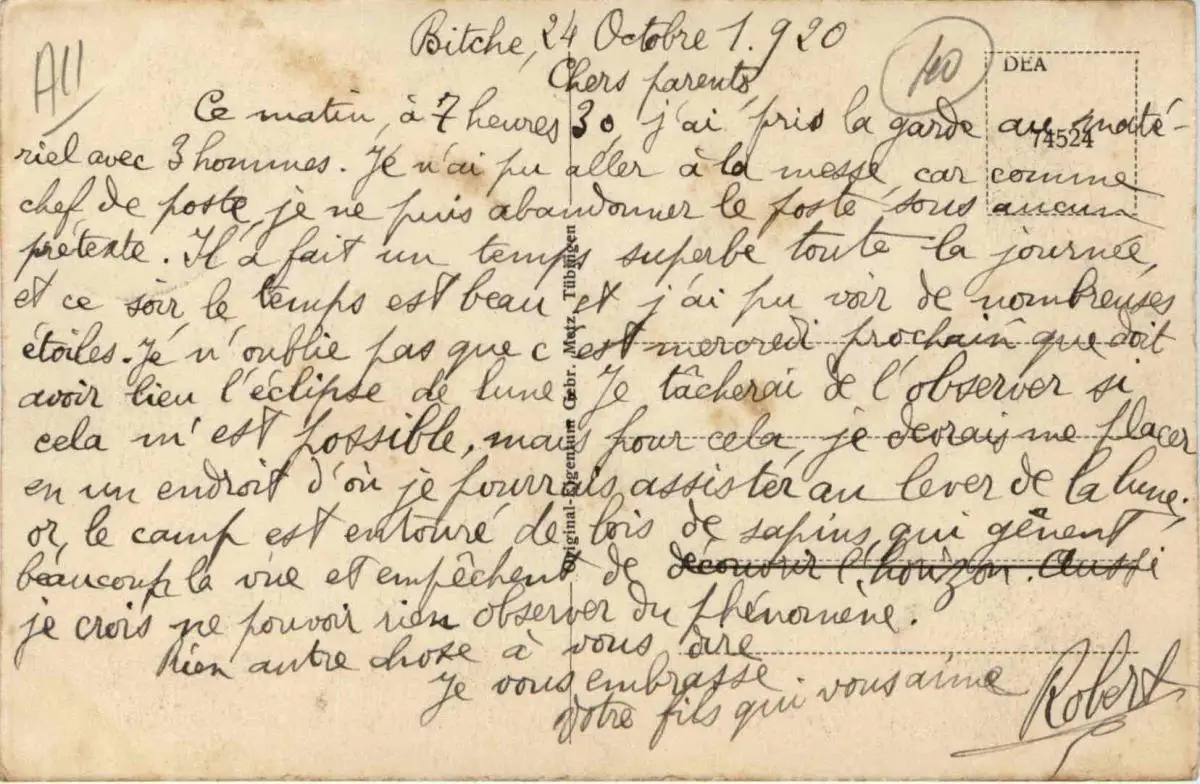 Bitche, 24 Octobre 1.920
All
40
DEA
74524
Chers parents,
Ce matin, à 7 heures 30, j'ai pris la garde au maté-
riel avec 3 hommes. Je n'ai pu aller à la messe, car comme
chef de poste, je ne puis abandonner le poste sous aucun
prétexte. Il a fait un temps superbe toute la journée,
et ce soir, le temps est beau et j'ai pu voir de nombreuses
étoiles. Je n'oublie pas que c'est mercredi prochain que doit
avoir lieu l'éclipse de lune. Je tâcherai de l'observer si
cela m'est possible, mais pour cela, je devrais me placer
en un endroit d'où je pourrais assister au lever de la lune;
or, le camp est entouré de bois de sapins, qui gênent
beaucoup la vue et empêchent de découvrir l'horizon. Aussi
je crois ne pouvoir rien observer du phénomène.
Rien autre chose à vous dire
Je vous embrasse
Votre fils qui vous aime
Robert
Original-Eigentum Gebr. Metz, Tübingen